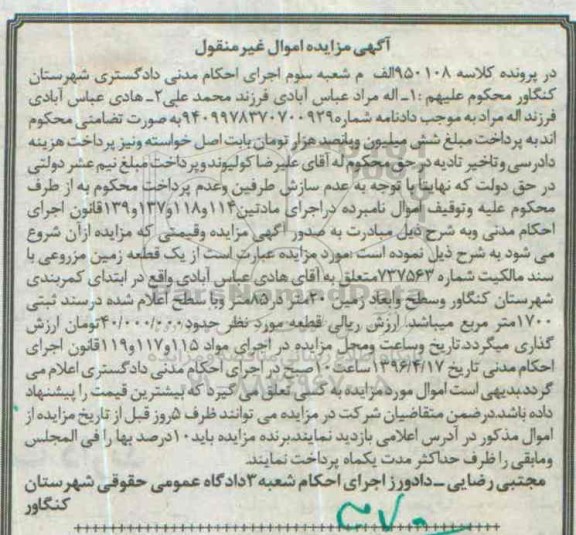 آگهی مزایده اموال غیر منقول
در پرونده کلاسه ۹۵۰۱۰۸الف م شعبه سوم اجرای احکام مدنی دادگستری شهرستان
کنگاور محکوم علیهم :۱ـ اله مراد عباس آبادی فرزند محمد علی۲ـ هادی عباس آبادی
فرزند اله مراد به موجب دادنامه شماره۹۴۰۹۹۷۸۳۷۰۷۰۰۹۳۹به صورت تضامنی محکوم
اندبه پرداخت مبلغ شش میلیون وپانصد هزار تومان بابت اصل خواسته ونیز پرداخت هزینه
دادرسی وتاخیر تادیه در حق محکوم له آقای علیرضا کولیوند وپرداخت مبلغ نیم عشر دولتی
در حق دولت که نهایتا با توجه به عدم سازش طرفین وعدم پرداخت محکوم به از طرف
محکوم علیه وتوقیف اموال نامبرده دراجرای مادتین۱۱۴و۱۱۸و۱۳۷و۱۳۹قانون اجرای
احکام مدنی وبه شرح ذیل مبادرت به صدور آگهی مزایده وقیمتی که مزایده ازآن شروع
می شود به شرح ذیل نموده است :مورد مزایده عبارت است از یک قطعه زمین مزروعی با
سند مالکیت شماره ۷۳۷۵۶۳متعلق به آقای هادی عباس آبادی واقع در ابتدای کمربندی
شهرستان کنگاور وسطح وابعاد زمین ۲۰متر در۸۵متر وبا سطح اعلام شده درسند ثبتی
۱۷۰۰متر مربع میباشد. ارزش ریالی قطعه مورد نظر حدود۴۰/۰۰۰/۰۰۰تومان ارزش
گذاری میگردد.تاریخ وساعت ومحل مزایده در اجرای مواد ۱۱۵و۱۱۷و۱۱۹قانون اجرای
احکام مدنی تاریخ ۱۳۹۶/۴/۱۷ساعت ۱۰صبح در اجرای احکام مدنی دادگستری اعلام می
گردد.بدیهی است اموال مورد مزایده به کسی تعلق می گیرد که بیشترین قیمت را پیشنهاد
داده باشد.درضمن متقاضیان شرکت در مزایده می توانند ظرف ۵روز قبل از تاریخ مزایده از
اموال مذکور در آدرس اعلامی بازدید نمایند.برنده مزایده باید۱۰درصد بها را فی المجلس
ومابقی را ظرف حداکثر مدت یکماه پرداخت نمایند.
مجتبی رضایی ـ دادورز اجرای احکام شعبه ۳دادگاه عمومی حقوقی شهرستان
کنگاور